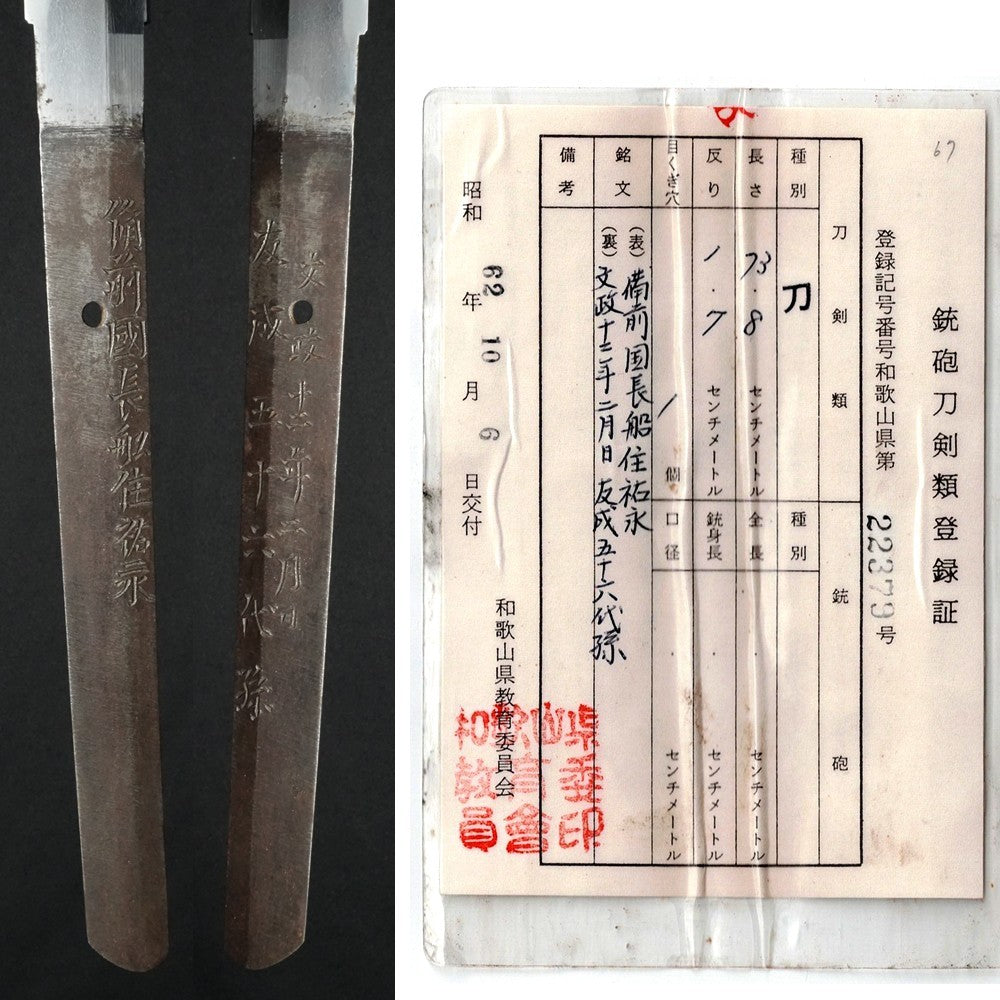 備前國長舩住祐永
文政十二年二月日
友成五十六代孫
67
銃砲刀剣類登録証
登録記号番号和歌山県第 22379 号
刀剣類 銃砲
種別 刀 種別
長さ 73.8 センチメートル 全長 . センチメートル
反り 1.7 センチメートル 銃身長 . センチメートル
目くぎ穴 1 個 口径 . センチメートル
銘文 (表) 備前国長船住祐永
(裏) 文政十二年二月日 友成五十六代孫
備考
昭和 62 年 10 月 6 日交付
和歌山県教育委員会
和歌山県
教育委
員會印